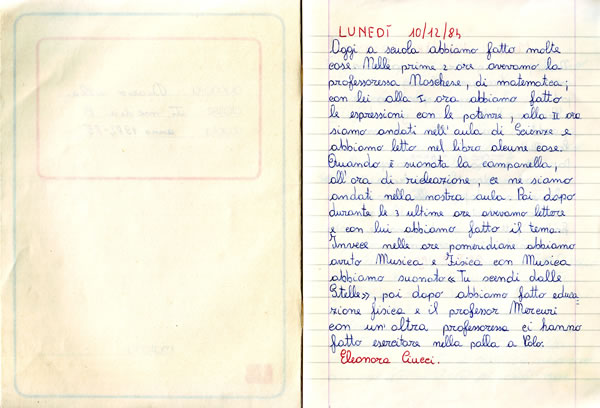 LUNEDÌ 10/12/84
Oggi a scuola abbiamo fatto molte
cose. Nelle prime 2 ore avevamo la
professoressa Moschese, di matematica;
con lei alla I ora abbiamo fatto
le espressioni con le potenze, alla II ora
siamo andati nell'aula di Scienze e
abbiamo letto nel libro alcune cose.
Quando è suonata la campanella,
all'ora di ricreazione, ce ne siamo
andati nella nostra aula. Poi dopo
durante le 3 ultime ore avevamo lettere
e con lui abbiamo fatto il tema.
Invece nelle ore pomeridiane abbiamo
avuto Musica e Fisica con Musica
abbiamo suonato «Tu scendi dalle
Stelle», poi dopo abbiamo fatto educa
zione fisica e il professor Mercuri
con un'altra professoressa ci hanno
fatto esercitare nella palla a Volo.
Eleonora Ciucci.